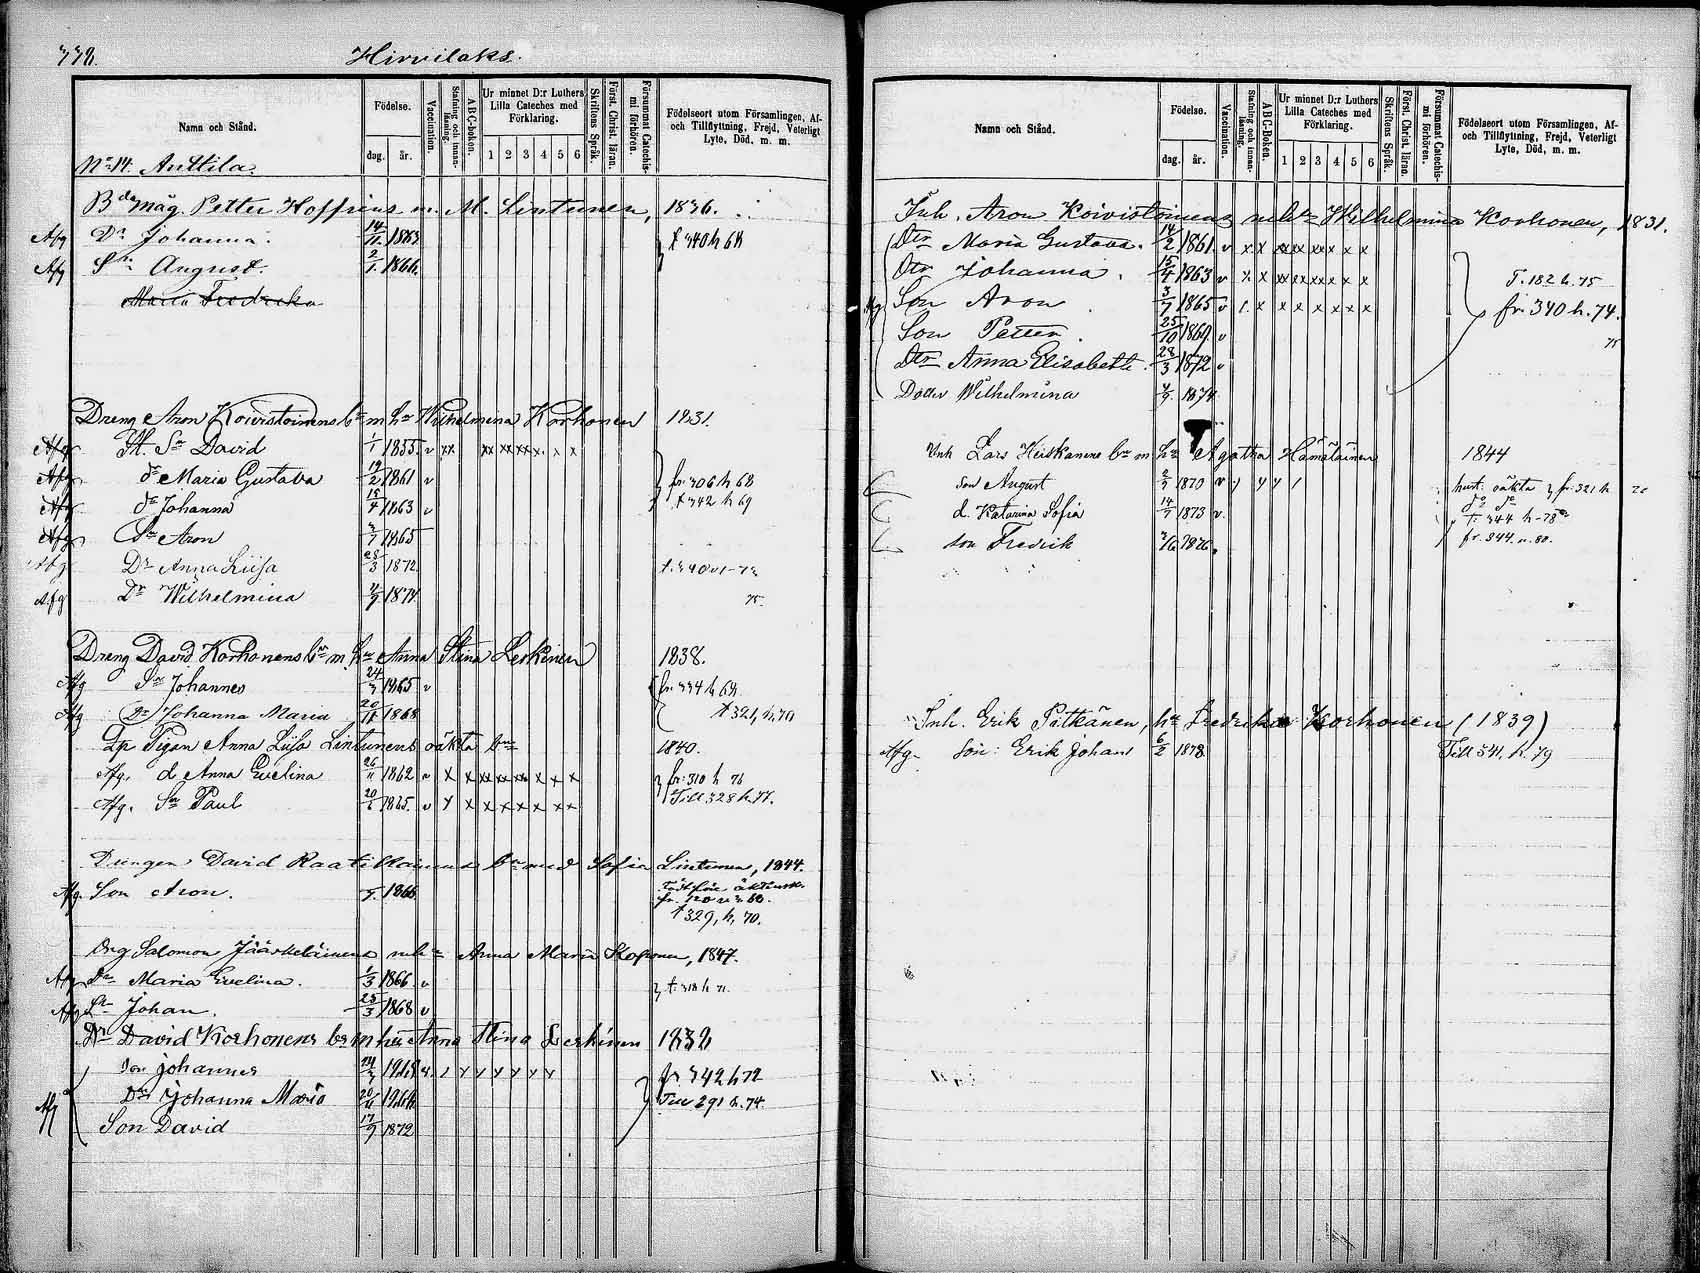 338.
Hirvilaks.
Namn och Stånd.
Födelse.
dag.
år.
Vaccination.
Stafning och innanläsning.
A B C-boken.
Ur minnet D:r Luthers Lilla Cateches med Förklaring.
1 2 3 4 5 6
Skriftens Språk.
Först. Christ. läran.
Försummat Catechismi förhören.
Födelseort utom Församlingen, Af- och Tillflyttning, Frejd, Veterligt Lyte, Död, m. m.
No 14. Anttila.
Petter Hoffrens m. M. Lintunen, 1836.
Afg Dr Johanna. 14/11 1863 t 340 h 68
Afg Sn August. 2/1 1866
Maria Fredrika
Dreng Aron Koivistoinens bn m hu Wilhelmina Korhonen 1831.
Afg St. Sn David 1/1 1855. v xx xx xx xx x x x
Afg dr Maria Gustava 14/2 1861 v fr. 306 h 68
Afg dr Johanna 15/4 1863 v t 342 h 69
Afg Sn Aron 3/7 1865
Afg Dr Anna Liisa 28/3 1872
Afg Dr Wilhelmina 4/9 1874 75.
Dreng David Korhonens bn m hu Anna Stina Leskinen 1838.
Afg Sn Johannes 24/7 1865 v fr. 334 h 68
Afg Dr Johanna Maria 20/11 1868 t 321, h. 70
Pigan Anna Liisa Lintunens oäkta bn 1840.
Afg. d Anna Evelina 26/11 1862 v x x xx xx xx x x x fr. 310 h 71
Afg. Sn Paul 20/6 1865. v x x x x x x x x Till 328 h. 77.
Drengen David Raatikainens bn med Sofia Lintunen, 1844.
Afg. Son Aron. 1866 född före äktensk.
t 329, h. 70.
Drg Salomon Jääskeläinens m hu Anna Maria Koponen, 1847.
Afg Dr Maria Evelina. 1/3 1866 v t. 318 h 71.
Afg Sn Johan. 25/3 1868 v
Dr David Korhonens bn m hu Anna Stina Leskinen 1838
Son Johannes 24/7 fr 342 h 72
Afg Dr Johanna Maria 20/11 1868 Till 291 h. 74.
Son David 17/9 1872
Namn och Stånd.
Födelse.
dag.
år.
Vaccination.
Stafning och innanläsning.
ABC-Boken.
Ur minnet D:r Luthers Lilla Cateches med Förklaring.
1 2 3 4 5 6
Skriftens Språk.
Först. Christ. läran.
Försummat Catechismi förhören.
Födelseort utom Församlingen, Af- och Tillflyttning, Frejd, Veterligt Lyte, Död, m. m.
Inh. Aron Koivistoinens m hu Wilhelmina Korhonen, 1831.
Dtr Maria Gustava. 14/2 1861 v x x xx xx xx x x x
Dtr Johanna. 15/4 1863 v x x xx xx x x x x T. 182 h. 75
Afg Son Aron 3/7 1865 v x x x x x x x fr. 340 h. 74.
Son Petter 25/10 1869 v 75
Dtr Anna Elisabeth. 28/3 1872 v
Dotter Wilhelmina 4/9. 1874
Inh Lars Heiskanens bn m hu Agatha Hämäläinen 1844
Son August 2/3 1870 v hust. oäkta fr. 321 h
d. Katarina Sofia 14/7 1873 v. T. 344 h-78
son Fredrik 1876 fr. 344. h. 80.
Inh. Erik Pitkänen, hu Fredrika Korhonen (1839)
Afg. son: Erik Johan 6/2 1878 Till 541, h. 79